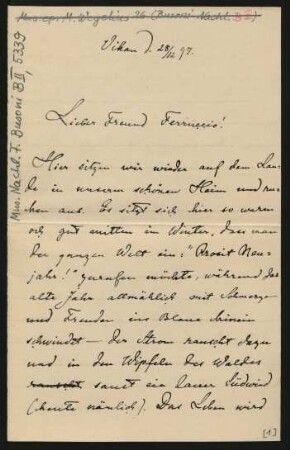 Mus.ep. M. Wegelius 76 (Busoni-Nachl. B II)
Mus. Nachl. F. Busoni B II, 5339
Vikan d. 28/12 97.
Lieber Freund Ferruccio!
Hier sitzen wir wieder auf dem Lan-
de in unserem schönen Heim und ru-
hen aus. Es sitzt sich hier so warm
och gut mitten im Winter, dass man
der ganzen Welt ein: "Prosit Neu-
jahr!" zurufen möchte, während das
alte Jahr allmählich mit Schmerz-
und Freuden ins Blaue hinein
schwindet – der Strom rauscht dazu
und in den Wipfeln des Waldes
rauscht sanft ein lauer Südwind
(heute nämlich). Das Leben wird
[1]